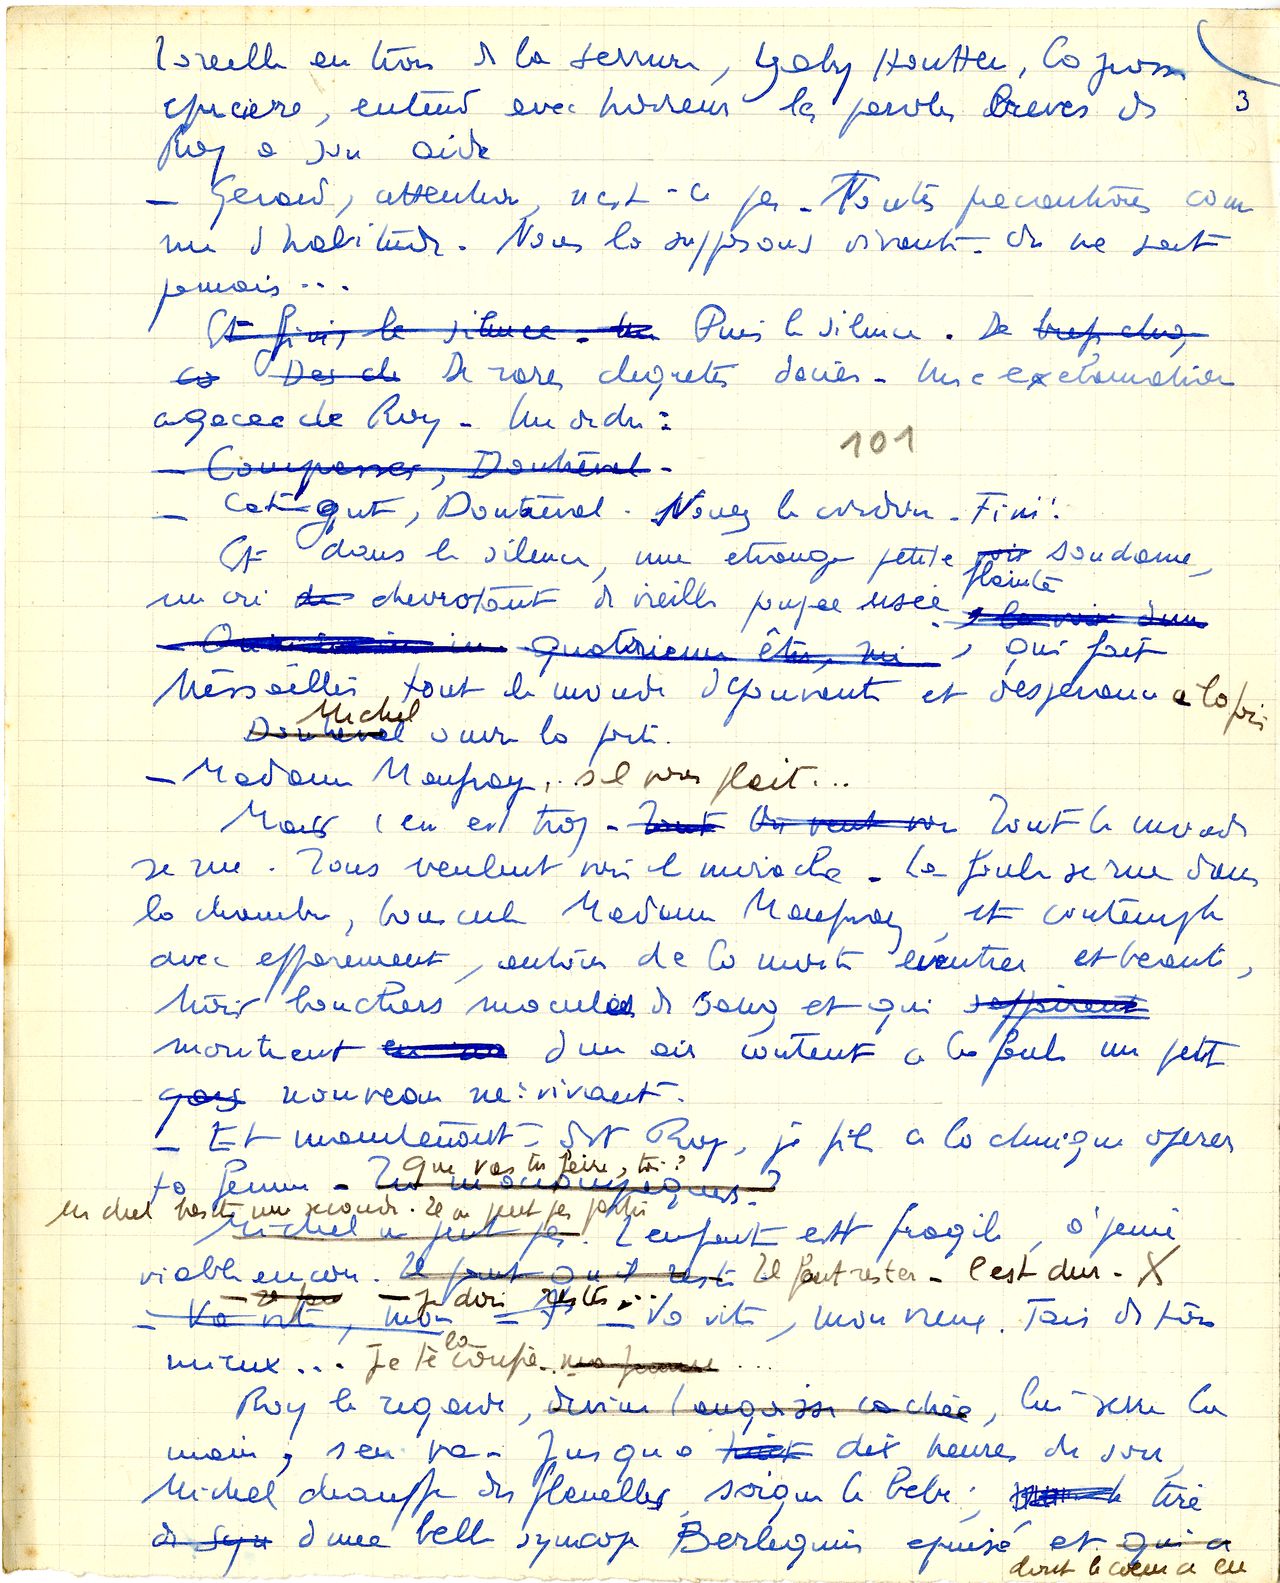 3
l'oreille au trou de la serrure, Gaby Houtten, la grosse
epiciere, entend avec horreur les paroles breves de
Roy a son aide
— Gerard, attention, n'est-ce pas. Toutes precautions com
me d'habitude. Nous la supposons vivante. On ne sait
jamais...
Et puis, le silence. Un Puis le silence. De trop cho
Des cli De rares cliquetis d'acier. Une exclamation
agacee de Roy. Un ordre :
101
— Compresses, Doutreval.
— Cat-gut, Doutreval. Nouez le cordon. Fini.
Et dans le silence, une etrange petite voix soudaine,
plainte
un cri de chevrotant de vieille poupee usée, la voix d'un
quatrieme être, qui , qui fait
tressaillir tout le monde d'epouvante et d'esperance a la fois
Michel
Doutreval ouvre la porte.
— Madame Maufray, s'il vous plait...
Mais c'en est trop. Tout On veut voir Tout le monde
se rue. Tous veulent voir le miracle. La foule se rue dans
la chambre, bouscule Madame Maufray, et contemple
avec effarement, autour de la morte éventree et beante,
trois bouchers maculés de sang et qui
montrent d'un air content a la foule un petit
gars nouveau né : vivant.
— Et maintenant, dit Roy, je file a la clinique operer
Que vas tu faire, toi ?
ta femme. Tu m'accompagnes ?
Michel hesite une seconde. Il ne peut pas partir
Michel ne peut pas. L'enfant est fragile, a peine
viable encore. Il faut qu'il reste Il faut rester. C'est dur. X
— Je dois rester...
— Va vite, mon — Va vite, mon vieux. Fais de ton
la
mieux... Je te confie ma femme ...
Roy le regarde, devine l'angoisse cachée, lui serre la
main, s'en va. Jusqu'a huit dix heures du soir,
Michel chauffe des flanelles, soigne le bebe, tire
de syn d'une belle syncope Berlequin epuisé et qui a
dont le cœur a eu